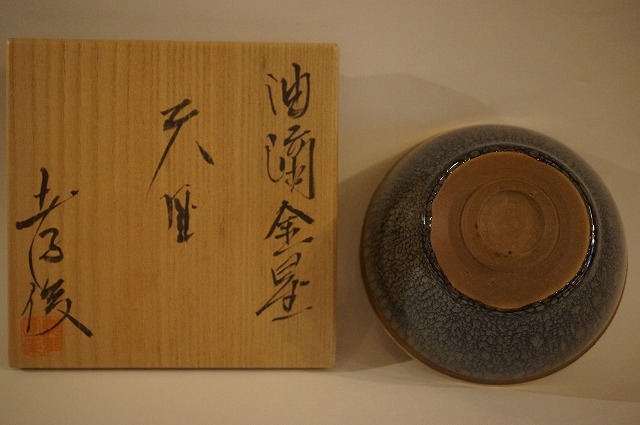 油滴金星
天目
孝俊